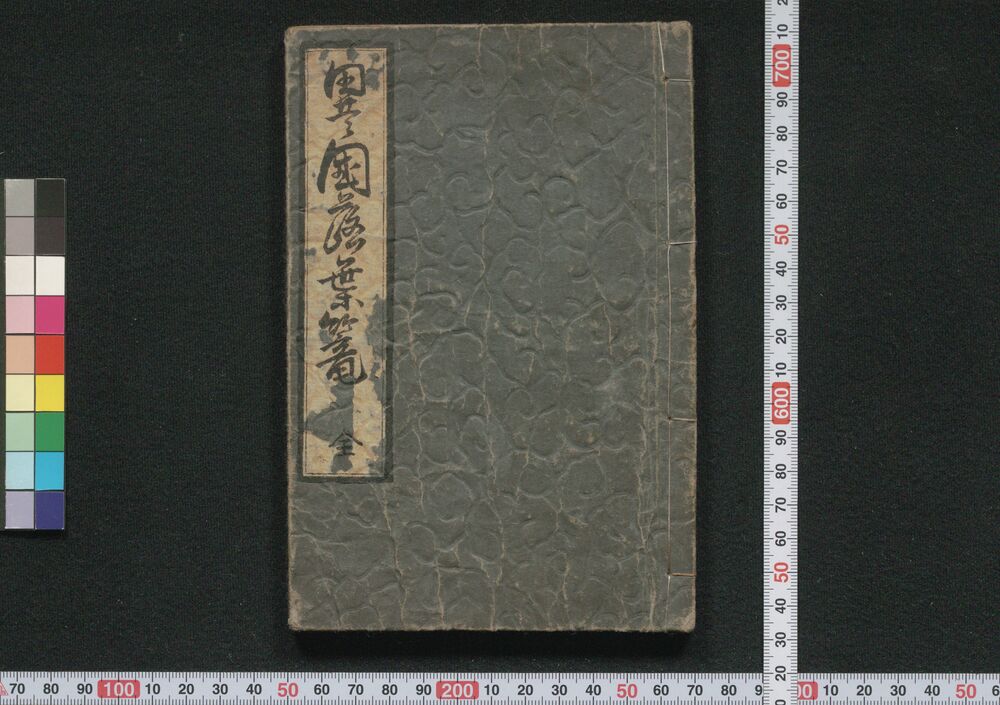 異國落葉篭
全
10 700 90 80 70 60 50 40 30 20 10 600 90 80 70 60 50 40 30 20
70 80 90 100 10 20 30 40 50 60 70 80 90 200 10 20 30 40 50 60 70 80 10 20 30 40 50